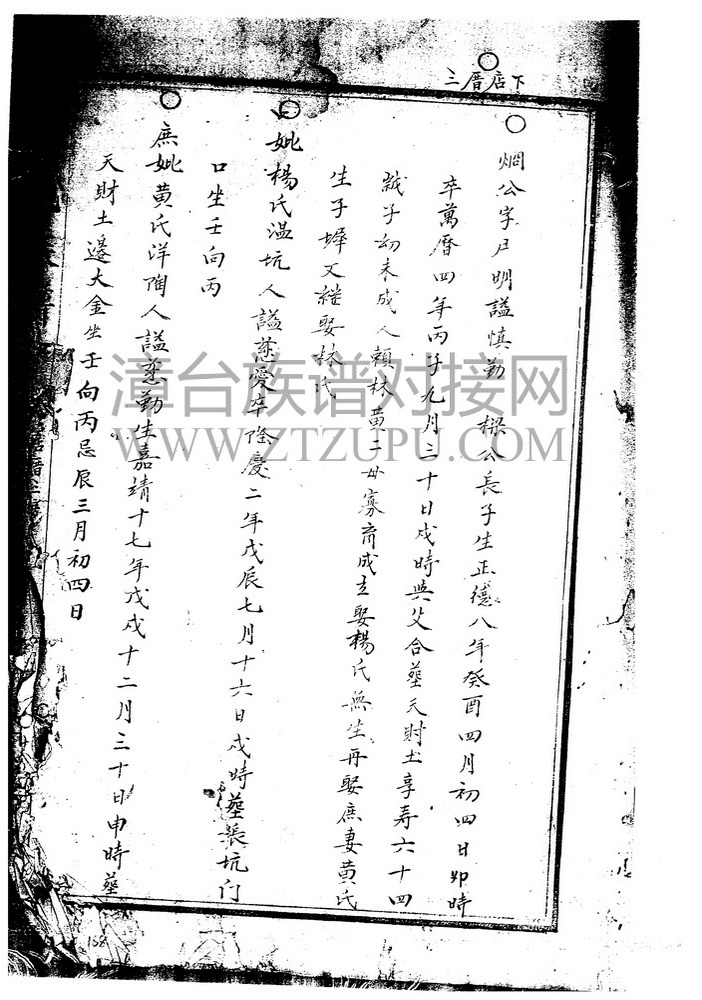 下店厝三
烱公字戶明謚慎勤 樑公長子生正德八年癸酉四月初四日卯時
卒萬曆四年丙子九月三十日戌時與父合塟天財土享寿六十四
子幼未成人賴林黄二母寡育成立娶楊氏無生再娶庶妻黄氏
生子墀又继娶林氏
妣楊氏温坑人謚慈愛卒隆慶二年戊辰七月十六日戌時塟張坑门
口坐壬向丙
庶妣黄氏洋陶人謚慈勤生嘉靖十七年戊戌十二月三十日申時塟
天財土邊大金坐壬向丙忌辰三月初四日
漳台族谱对接网
WWW.ZTZUPU.COM
168